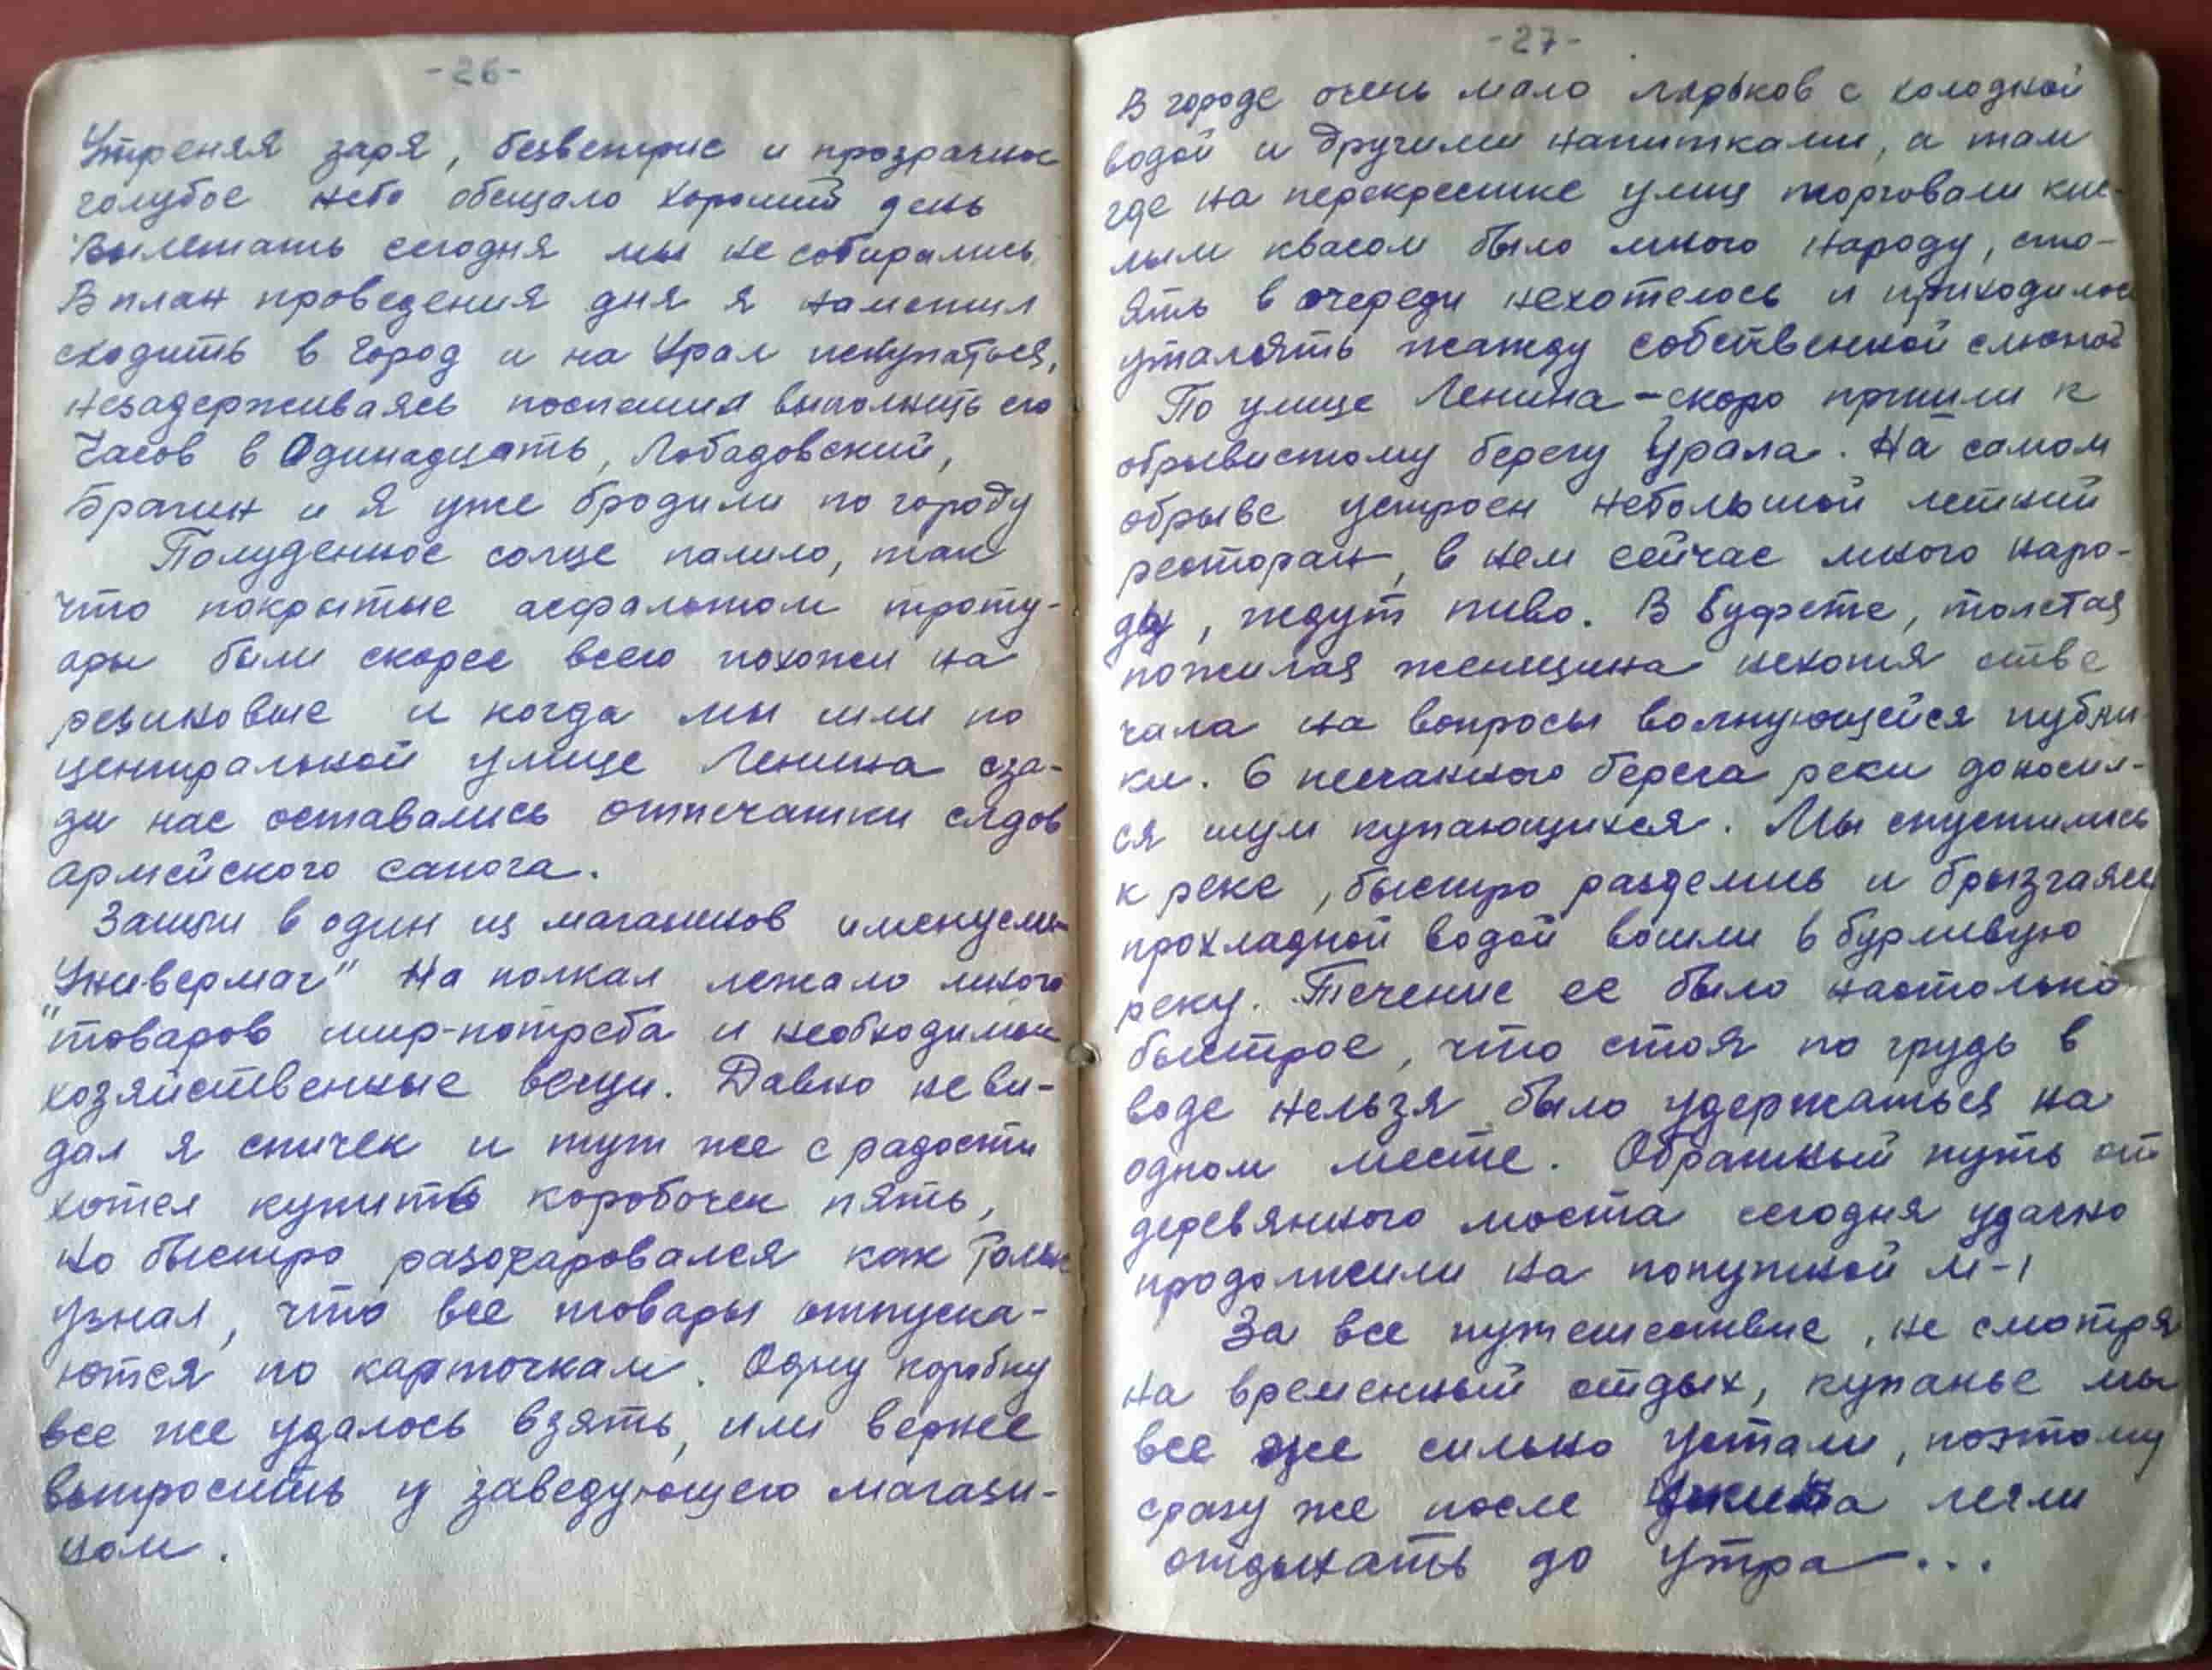 -26-
Утреняя заря, безветрие и прозрачное
голубое небо обещало хороший день
Вылетать сегодня мы не собирались.
В план проведения дня я наметил
сходить в город и на Урал искупаться,
незадерживаясь поспешил выполнить его
Часов в Одинадцать, Лобадовский,
Брагин и я уже бродили по городу
Полуденное солце палило, так
что покрытые асфальтом троту-
ары были скорее всего похожи на
резиновые и когда мы шли по
центральной улице Ленина сза-
ди нас оставались отпечатки следов
армейского сапога.
Зашли в один из магазинов именуемы
"Универмаг" На полках лежало много
товаров шир-потреба и необходимые
хозяйственные вещи. Давно не ви-
дал я спичек и тут же с радости
хотел купить коробочек пять,
но быстро разочаровался как только
узнал, что все товары отпуска-
ются по карточкам. Одну коробку
все же удалось взять, или вернее
выпросить у заведующего магази-
ном.
-27-
В городе очень мало ларьков с холодной
водой и другими напитками, а там
где на перекрестке улиц торговали кис-
лым квасом было много народу, сто-
ять в очереди нехотелось и приходилось
утолять жажду собственной слюной
По улице Ленина - скоро пришли к
обрывистому берегу Урала. На самом
обрыве устроен небольшой летний
ресторан, в нем сейчас много наро-
ду, ждут пиво. В буфете, толстая
пожилая женщина нехотя отве
чала на вопросы волнующейся публи-
ки. С песчанного берега реки доносил-
ся шум купающихся. Мы спустились
к реке, быстро разделись и брызгаясь
прохладной водой вошли в бурливую
реку. Течение ее было настолько
быстрое, что стоя по грудь в
воде нельзя было удержаться на
одном месте. Обратный путь от
деревянного моста сегодня удачно
продолжили на попутной М-1
За все путешествие, не смотря
на временный отдых, купанье мы
все же сильно устали, поэтому
сразу же после ужина легли
отдыхать до утра...